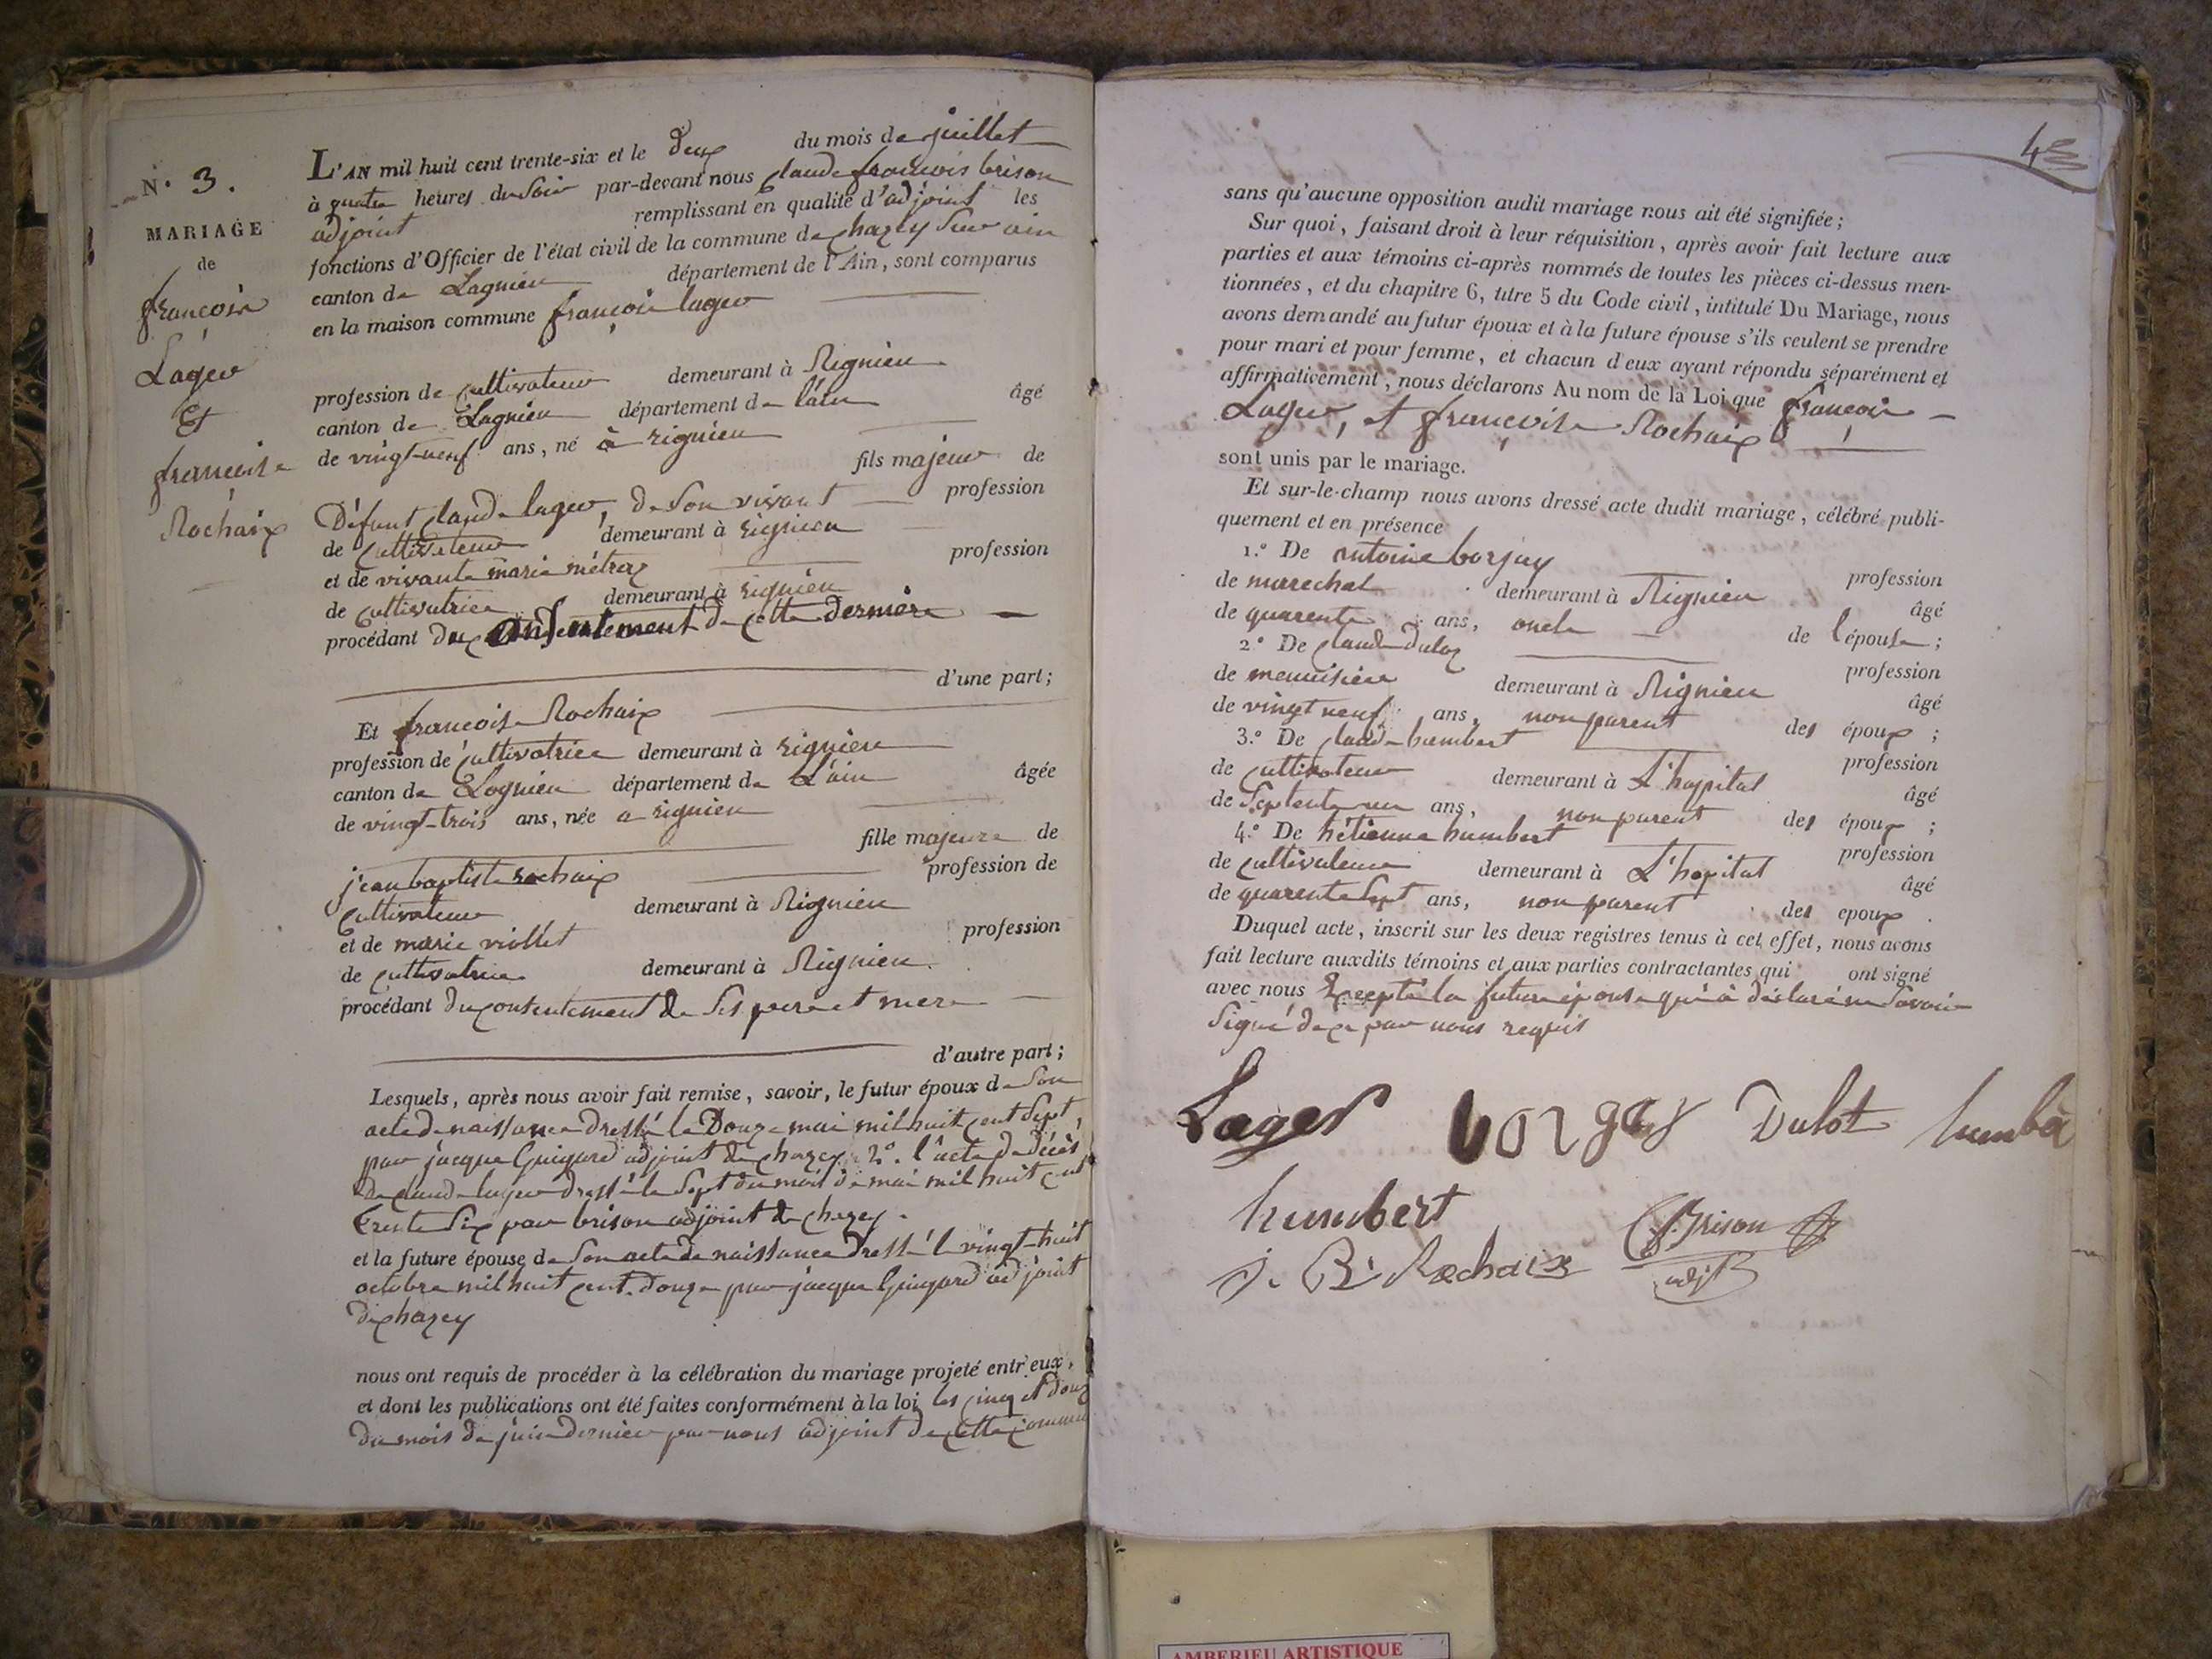 N.° 3.
MARIAGE
de
françois
Lager
Et
francoise
Rochaix
L'AN mil huit cent trente-six et le deux du mois de juillet
à quatre heures du soir par-devant nous claude françois brison
adjoint remplissant en qualité d'adjoint les
fonctions d'Officier de l'état civil de la commune de chazey sur ain
canton de Lagnieu département de l'Ain, sont comparus
en la maison commune françois lager
profession de cultivateur demeurant à Rignieu
canton de Lagnieu département de l'ain âgé
de vingt-neuf ans, né à rignieu
fils majeur de
Défunt claude lager, de son vivant profession
de cultivateur demeurant à rignieu
et de vivante marie métraz profession
de cultivatrice demeurant à rignieu
procédant du consentement de cette dernière
d'une part;
Et francoise Rochaix
profession de cultivatrice demeurant à rignieu
canton de Lagnieu département de L'ain âgée
de vingt-trois ans, née a rignieu
fille majeure de
jean baptiste rochaix profession de
cultivateur demeurant à Rignieu
et de marie viollet profession
de cultivatrice demeurant à Rignieu
procédant du consentement de ses pere et mere
d'autre part;
Lesquels, après nous avoir fait remise, savoir, le futur époux de son
acte de naissance dressé le Douze mai mil huit cent sept,
par jacque Guigard adjoint de chazey, 2°. l'acte de décès
de claude lager dressé le sept du mois de mai mil huit cent
trente six par brison adjoint de chazey.
et la future épouse de son acte de naissance dressé le vingt-huit
octobre mil huit cent douze par jacque Guigard adjoint
de chazey
nous ont requis de procéder à la célébration du mariage projeté entr'eux,
et dont les publications ont été faites conformément à la loi les cinq et douz
du mois de juin dernier par nous adjoint de cette commu
48
sans qu'aucune opposition audit mariage nous ait été signifiée;
Sur quoi, faisant droit à leur réquisition, après avoir fait lecture aux
parties et aux témoins ci-après nommés de toutes les pièces ci-dessus men-
tionnées, et du chapitre 6, titre 5 du Code civil, intitulé Du Mariage, nous
avons demandé au futur époux et à la future épouse s'ils veulent se prendre
pour mari et pour femme, et chacun d'eux ayant répondu séparément et
affirmativement, nous déclarons Au nom de la Loi que françois
Lager, et françoise Rochaix
sont unis par le mariage.
Et sur-le-champ nous avons dressé acte dudit mariage, célébré publi-
quement et en présence
1.° De antoine borjay profession
de marechal demeurant à Rignieu âgé
de quarente ans, oncle de l'épouse;
2° De claude duloz profession
de menuisier demeurant à Rignieu âgé
de vingt neuf ans, non parent des époux;
3.° De claude humbert profession
de cultivateur demeurant à L'hopital âgé
de septente un ans, non parent des époux;
4.° De hétienne humbert profession
de cultivateur demeurant à L'hopital âgé
de quarente sept ans, non parent des epoux.
Duquel acte, inscrit sur les deux registres tenus à cet effet, nous avons
fait lecture auxdits témoins et aux parties contractantes qui ont signé
avec nous Excepté la future épouse qui à déclaré ne savoir
signé de ce par nous requis
Lager borgay Dulot humber
humbert
j. B. Rochaix C. f. Brison
adj
AMBERIEU ARTISTIQUE